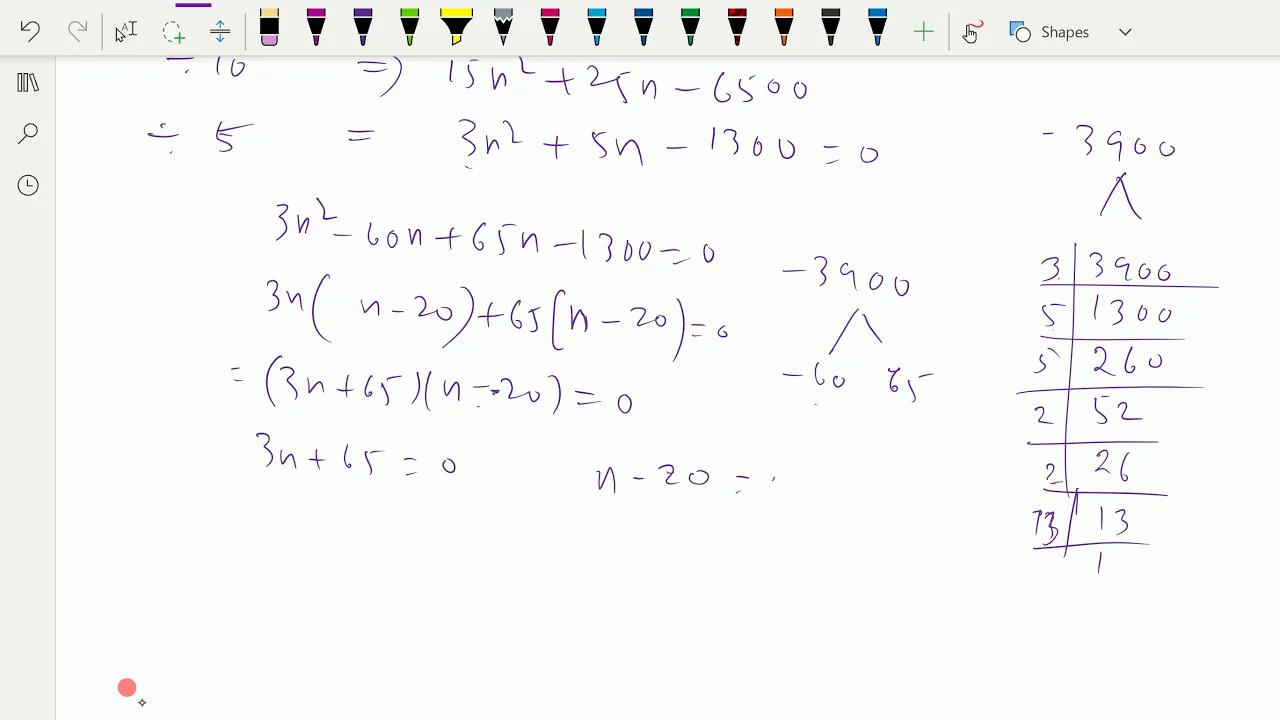 Shapes
÷ 10 => 15n² + 25n - 6500
÷ 5 = 3n² + 5n - 1300 = 0
3n² - 60n + 65n - 1300 = 0
3n( n - 20) + 65(n - 20) = 0
= (3n + 65)(n - 20) = 0
3n + 65 = 0 n - 20 =
- 3900
- 60 65
- 3900
3 3900
5 1300
5 260
2 52
2 26
13 13
1